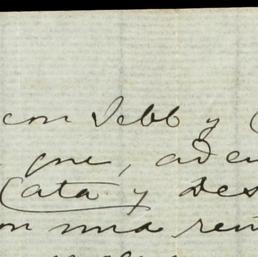 con Webb y
que, adem
Cata y des
on una reu